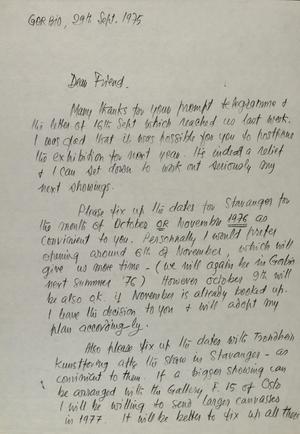 GORBIO, 29th Sept. 1975
Dear Friend.
Many thanks for your prompt telegramme &
the letter of 16th Sept which reached us last week.
I was glad that it was possible for you to postpone
the exhibition for next year. It's indeed a relief
& I can set down to work out seriously my
next showings.
Please fix up the dates for Stavanger for
the month of October or November 1976 as
convinient to you. Personnally I would prefer
opening around 6th of November, which will
give us more time - (we will again be in Gorbio
next summer '76) However october 9th will
be also ok. if November is already booked up.
I have the decision to you & will adopt my
plan accordingly.
Also please fix up the dates with Trondheim
Kunstforening after the show in Stavanger - as
convinient to them. If a bigger showing can
be arranged with the Gallery F. 15 of Oslo
I will be willing to send larger canvasses
in 1977. It will be better to fix up all these